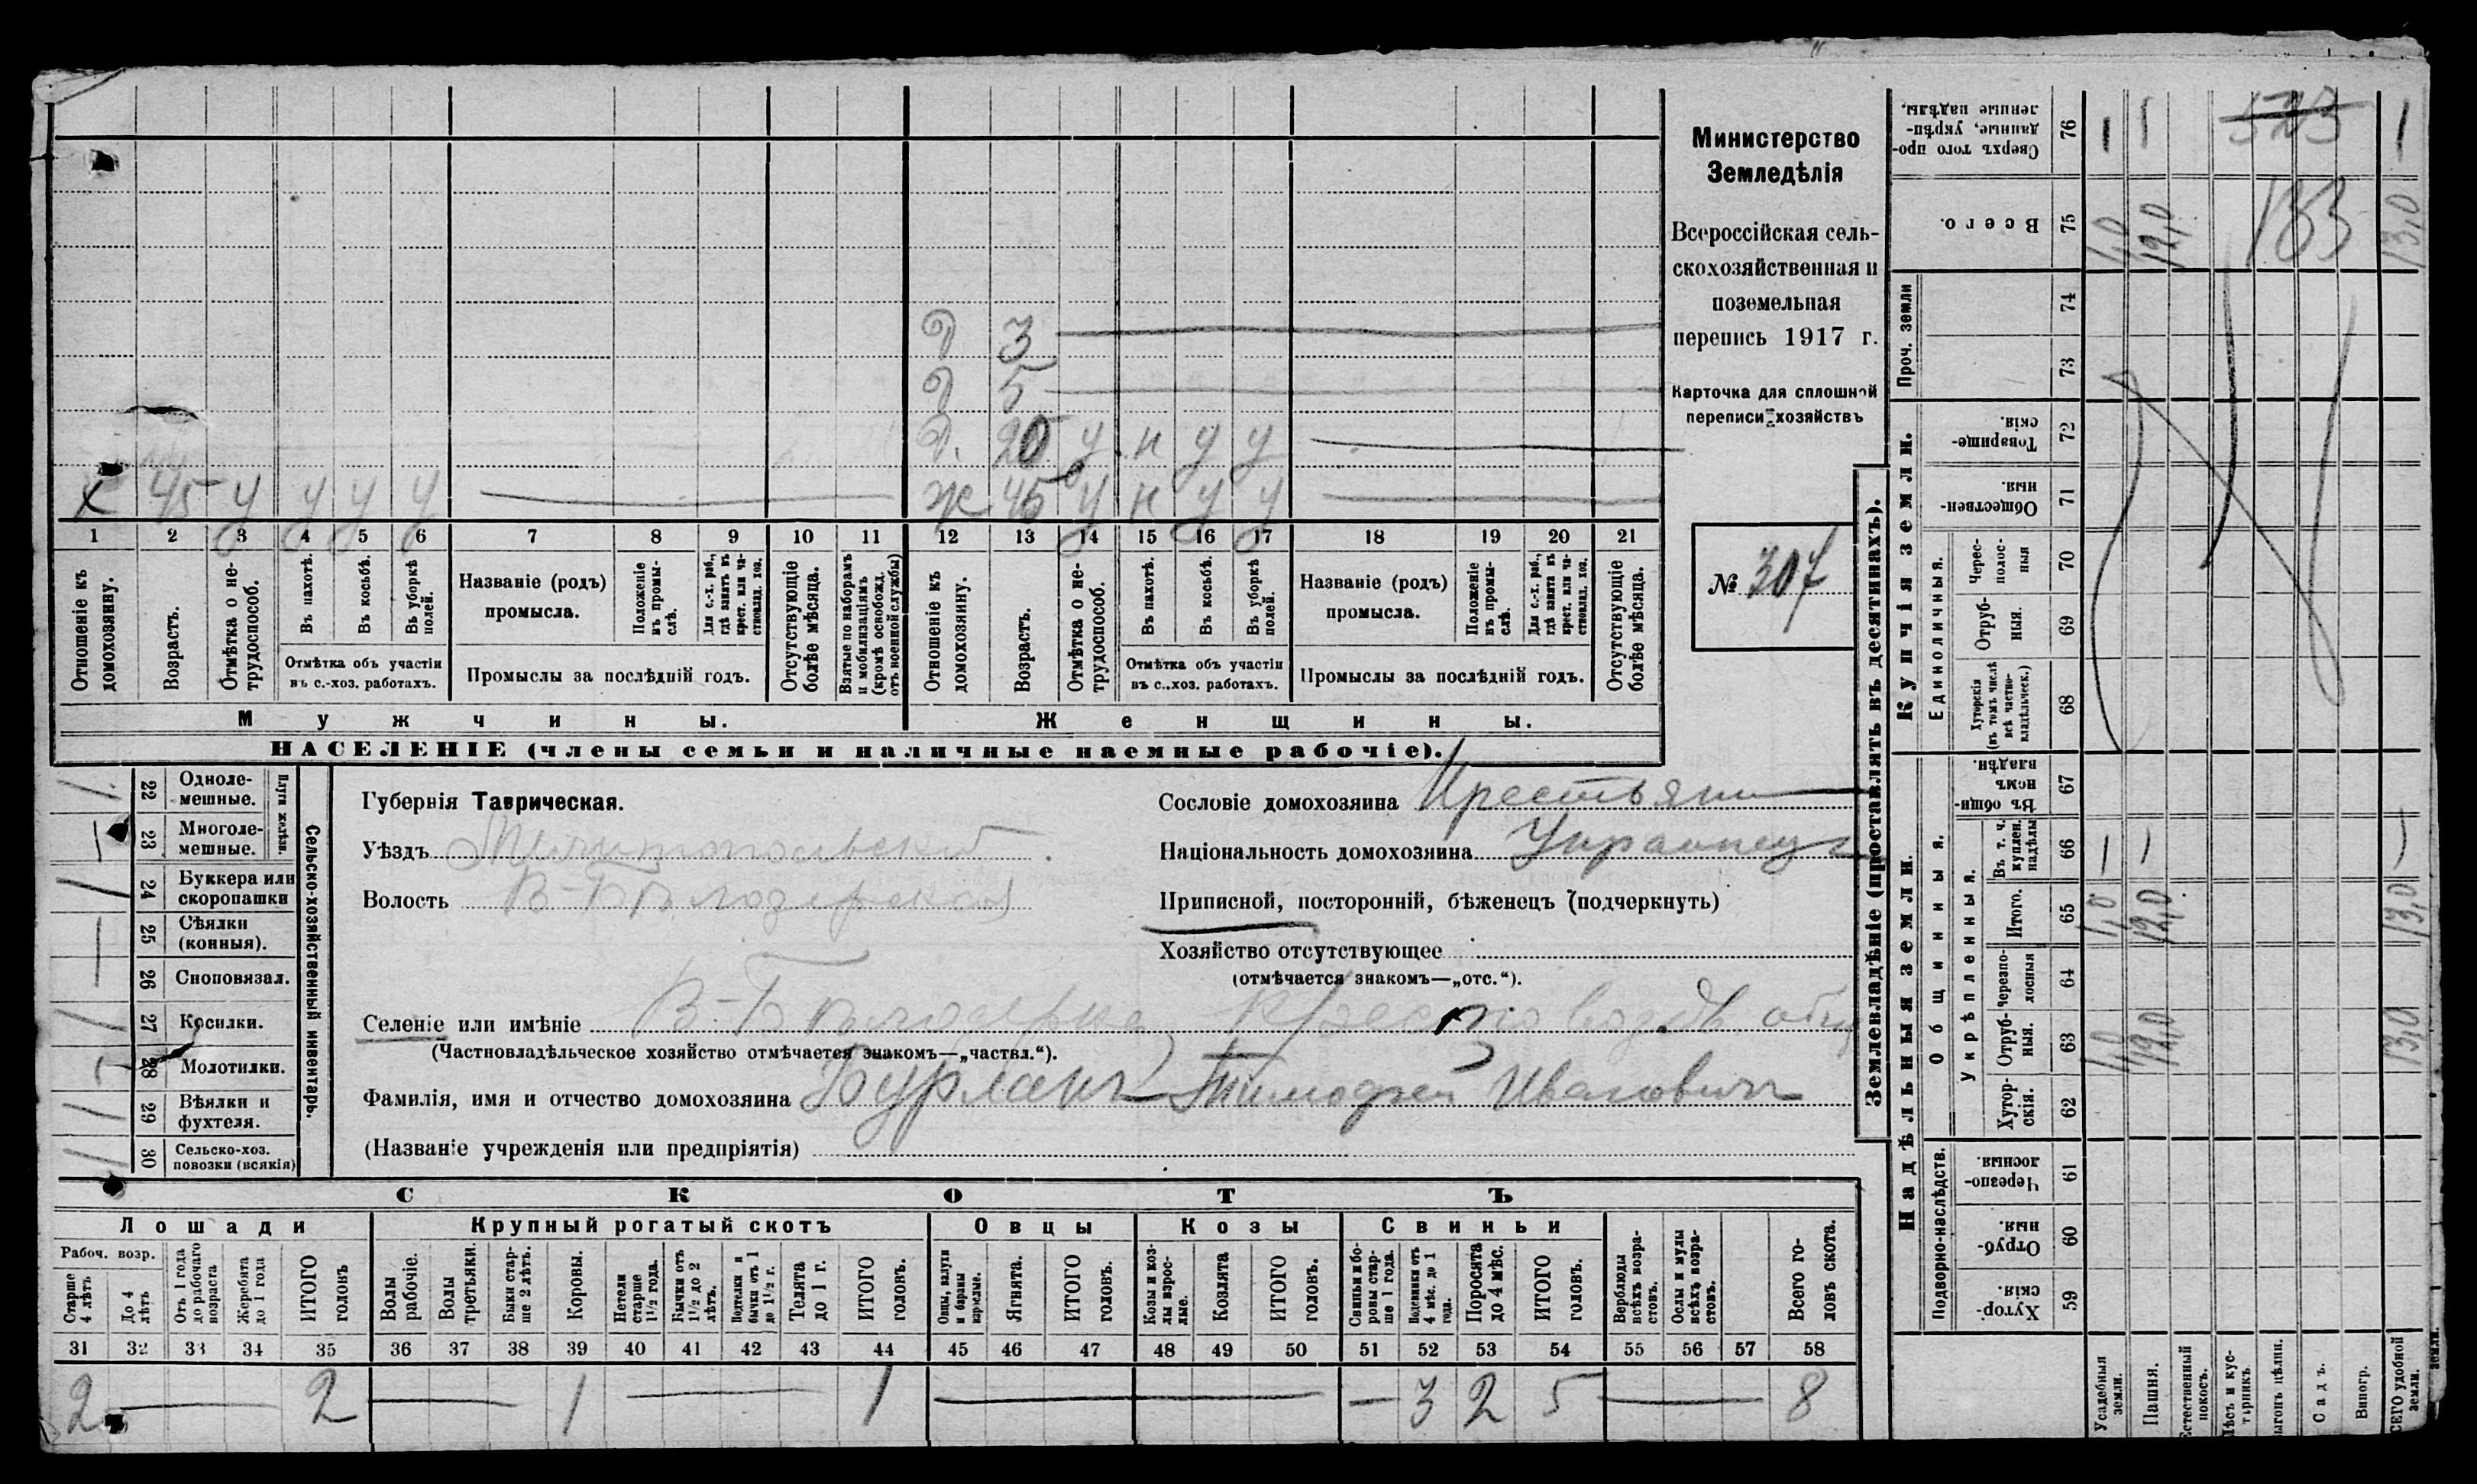 Министерство
Земледѣлія
Всероссійская сель-
скохозяйственная и
поземельная
перепись 1917 г.
Карточка для сплошной
переписи хозяйствъ
№ 307
Д 3
Д 5
Д. 20 у н у у
Х 45 у у у у
Ж 45 у н у у
1 2 3 4 5 6 7 8 9 10 11 12 13 14 15 16 17 18 19 20 21
Отношеніе къ домохозяину.
Возрастъ.
Отмѣтка о не-трудоспособ.
Въ пахотѣ.
Въ косьбѣ.
Въ уборкѣ полей.
Отмѣтка объ участіи
въ с.-хоз. работахъ.
Названіе (родъ)
промысла.
Положеніе въ промы-слѣ.
Для с.-х. раб., гдѣ занятъ въ крест. или ча-стновлад. хоз.
Промыслы за послѣдній годъ.
Отсутствующіе болѣе мѣсяца.
Взятые по наборамъ и мобилизаціямъ (кромѣ освобожд. отъ военной службы)
Отношеніе къ домохозяину.
Возрастъ.
Отмѣтка о не-трудоспособ.
Въ пахотѣ.
Въ косьбѣ.
Въ уборкѣ полей.
Отмѣтка объ участіи
въ с.-хоз. работахъ.
Названіе (родъ)
промысла.
Положеніе въ промы-слѣ.
Для с.-х. раб., гдѣ занята въ крест. или ча-стновлад. хоз.
Промыслы за послѣдній годъ.
Отсутствующіе болѣе мѣсяца.
Мужчины.
Женщины.
НАСЕЛЕНІЕ (члены семьи и наличные наемные рабочіе).
Сельско-хозяйственный инвентарь.
Плуги желѣзн.
1. 22 Одноле-мешные.
23 Многоле-мешные.
1 24 Буккера или скоропашки
25 Сѣялки (конныя).
26 Сноповязал.
1 27 Косилки.
28 Молотилки.
1 29 Вѣялки и фухтеля.
1 30 Сельско-хоз. повозки (всякія)
Губернія Таврическая.
Уѣздъ Мелитопольский
Волость В-Бѣлозерская
Сословіе домохозяина Крестьянин
Національность домохозяина Украинец
Приписной, посторонній, бѣженецъ (подчеркнуть)
Хозяйство отсутствующее
(отмѣчается знакомъ—„отс.“).
Селеніе или имѣніе В-Бѣлозерка
(Частновладѣльческое хозяйство отмѣчается знакомъ—„частвл.“).
Фамилія, имя и отчество домохозяина Бурлакъ Тимофей Иванович
(Названіе учрежденія или предпріятія)
СКОТЪ
Лошади
Крупный рогатый скотъ
Овцы
Козы
Свиньи
Рабоч. возр.
Старше 4 лѣтъ
До 4 лѣтъ
Отъ 1 года до рабочаго возраста
Жеребята до 1 года
ИТОГО головъ
Волы рабочіе.
Волы третьяки.
Быки стар-ше 2 лѣтъ.
Коровы.
Нетели старше 1½ года.
Бычки отъ 1½ до 2 лѣтъ.
Подтелки и бычки отъ 1 до 1½ г.
Телята до 1 г.
ИТОГО головъ.
Овцы, валухи и бараны взрослые.
Ягнята.
ИТОГО головъ.
Козы и коз-лы взрос-лые.
Козлята
ИТОГО головъ.
Свиньи и бо-ровы стар-ше 1 года.
Подсвинки отъ 4 мѣс. до 1 года.
Поросята до 4 мѣс.
ИТОГО головъ.
Верблюды всѣхъ возра-стовъ.
Ослы и мулы всѣхъ возра-стовъ.
Всего го-ловъ скота.
31 32 33 34 35 36 37 38 39 40 41 42 43 44 45 46 47 48 49 50 51 52 53 54 55 56 57 58
2 — 2 — 1 — 1 — — 3 2 5 — 8
Землевладѣніе (проставлять въ десятинахъ).
Надѣльныя земли.
Купчія земли.
Проч. земли
Подворно-наслѣдств.
Общинныя.
Укрѣпленныя.
Единоличныя.
Сверхъ того про-данные, укрѣп-ленные надѣлы. 76
523
Всего. 75 1,0 12,0 133 13,0
74
73
Товарище-скія. 72
Обществен-ныя. 71
Черес-полос-ныя 70
Отруб-ныя. 69
Хуторскія (въ томъ числѣ всѣ частно-владѣльческ.) 68
Въ общи-номъ владѣн. 67
Въ т. ч. куплен. надѣлы 66
Итого. 65 1,0 12,0 13,0
Черезпо-лосныя 64
Отруб-ныя. 63 1,0 12,0 13,0
Хутор-скія. 62
Черезпо-лосныя. 61
Отруб-ныя. 60
Хутор-скія. 59
Усадебныя земли.
Пашня.
Естественный покосъ.
Лѣсъ и кус-тарникъ
Выгонъ цѣлин.
Садъ.
Виногр.
ВСЕГО удобной земли.
земли.